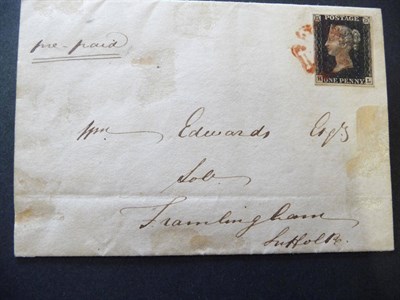 POSTAGE
ONE PENNY L
pre-paid
Wm Edwards Esqr
Solr
Framlingham
Suffolk.